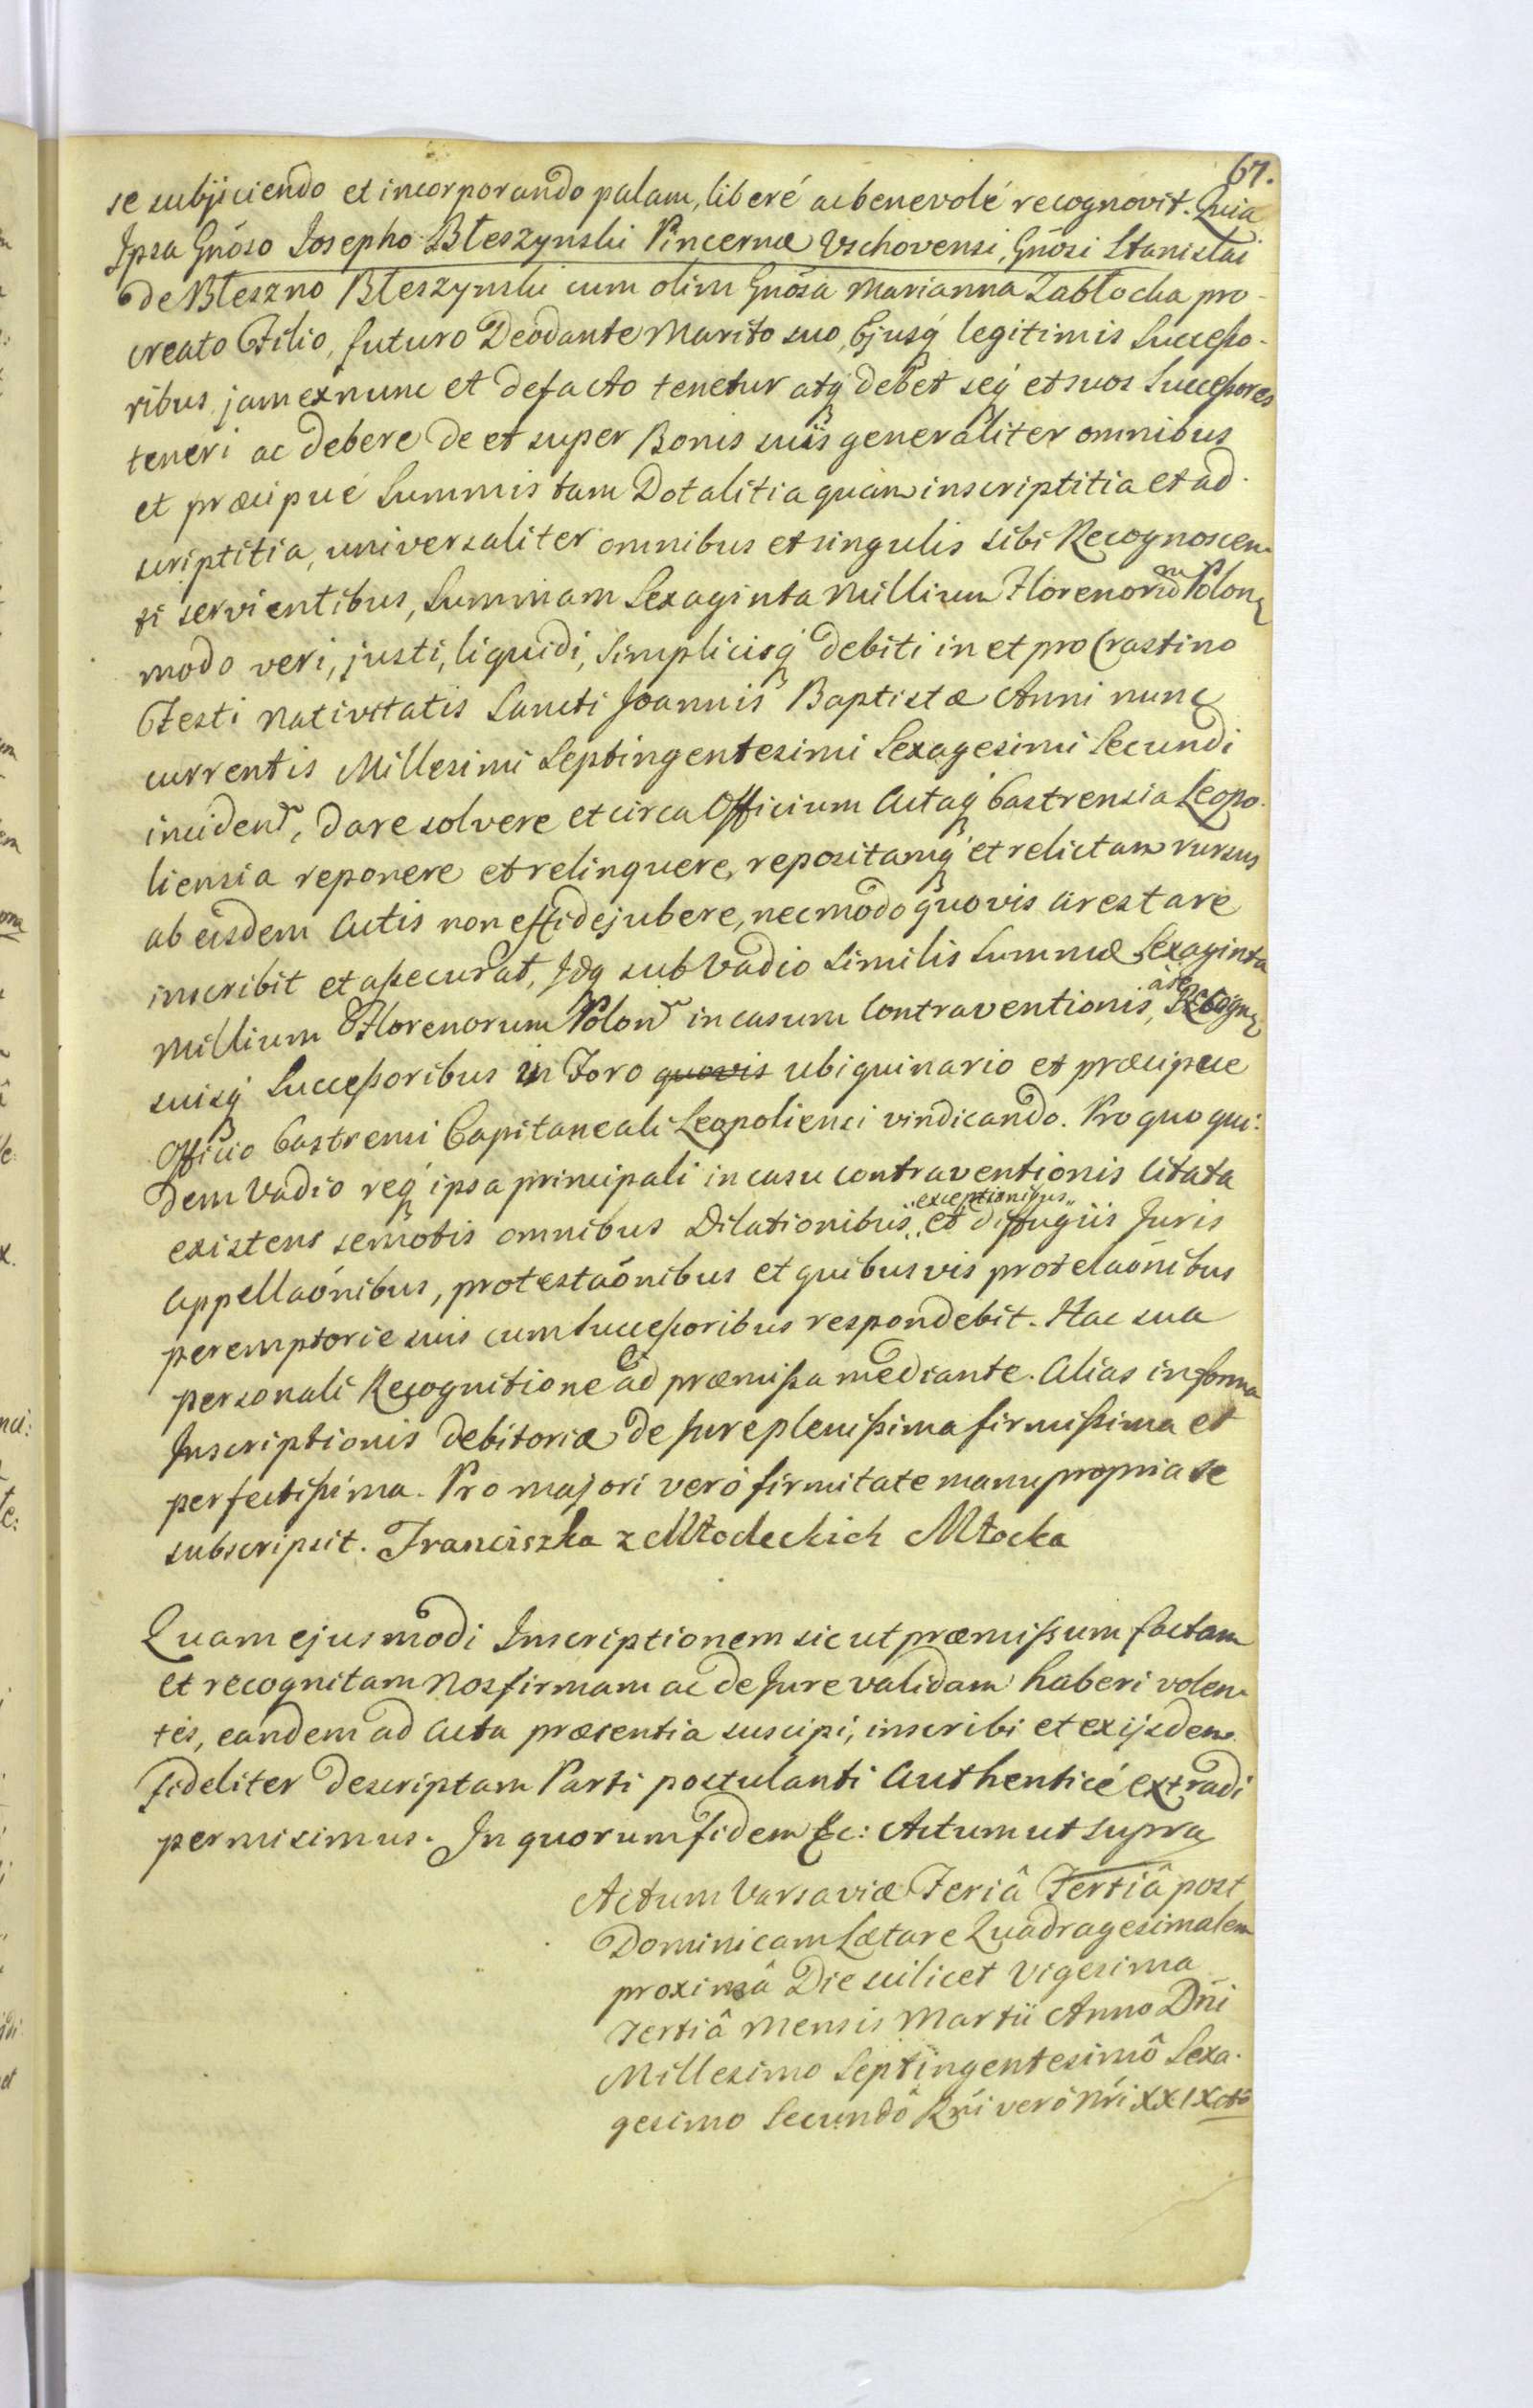 67.
se subijciendo et incorporando palam, liberé ac benevolé recognovit. Quia
Ipsa Gnōso Iosepho Błeszynski Pincernæ Vschovensi, Gnōsi Stanislai
de Bleszno Błeszynski cum olim Gnōsa Marianna Zabłocka pro-
creato Filio, futuro Deodante Marito suo, Ejusq́ legitimis Successo-
ribus jam ex nunc et de facto tenetur atq́ debet seq́ et suos Successores
teneri ac debere de et super Bonis suis generaliter omnibus
et præcipué Summis tam Dotalitia quàm inscriptitia et ad-
scriptitia, universaliter omnibus et singulis sibi Recognoscen-
ti servientibus, Summam Sexaginta Millium Florenorum Polon
modo veri, justi, liquidi, Simplicisq́ debiti in et pro Crastino
Festi Nativitatis Sancti Joannis Baptistæ Anni nunc
currentis Millesimi Septingentesimi Sexagesimi Secundi
inciden, dare solvere et circa Officium Actaq́ Castrensia Leopo-
liensia reponere et relinquere, repositamq́ et relictam rursus
ab eisdem Actis non effidejubere, nec modo quovis arestare
inscribit et assecurat, Idq sub Vadio similis Summæ Sexaginta
Millium Florenorum Polon in casum Contraventionis,
suisq́ Successoribus in Foro quovis ubiquinario et præcipue
Officio Castrensi Capitaneali Leopoliensi vindicando. Pro quo qui-
dem Vadio req́ ipsa principali in casu contraventionis Citata
existens semotis omnibus Dilationibus, exceptionibus et diffugiis Juris
Appellaōnibus, protestaōnibus et quibusvis protelaōnibus
peremptorie suis cum Successoribus respondebit. Hac sua
personali Recognitione ad præmissa mediante. Alias in forma
Inscriptionis debitoriæ de Jure plenissima firmissima et
perfectissima. Pro majori veró firmitate manu propria se
subscripsit. Franciszka z Młodeckich Młocka
Quam ejusmodi Inscriptionem sic ut præmissum factam
et recognitam Nos firmam ac de Jure validam haberi volen-
tes, eandem ad Acta præsentia suscipi, inscribi et ex ijsdem
fideliter descriptam Parti postulanti Authenticé extradi
permisimus. In quorum fidem &c: Actum ut supra
Actum Varsaviæ Feriâ Tertiâ post
Dominicam Lætare Quadragesimalem
proximâ Die scilicet Vigesima
Tertiâ Mensis Martii Anno Dn̄i
Millesimo Septingentesimô Sexa-
gesimo Secundô Rn̄i veró Nr̄i XXIX